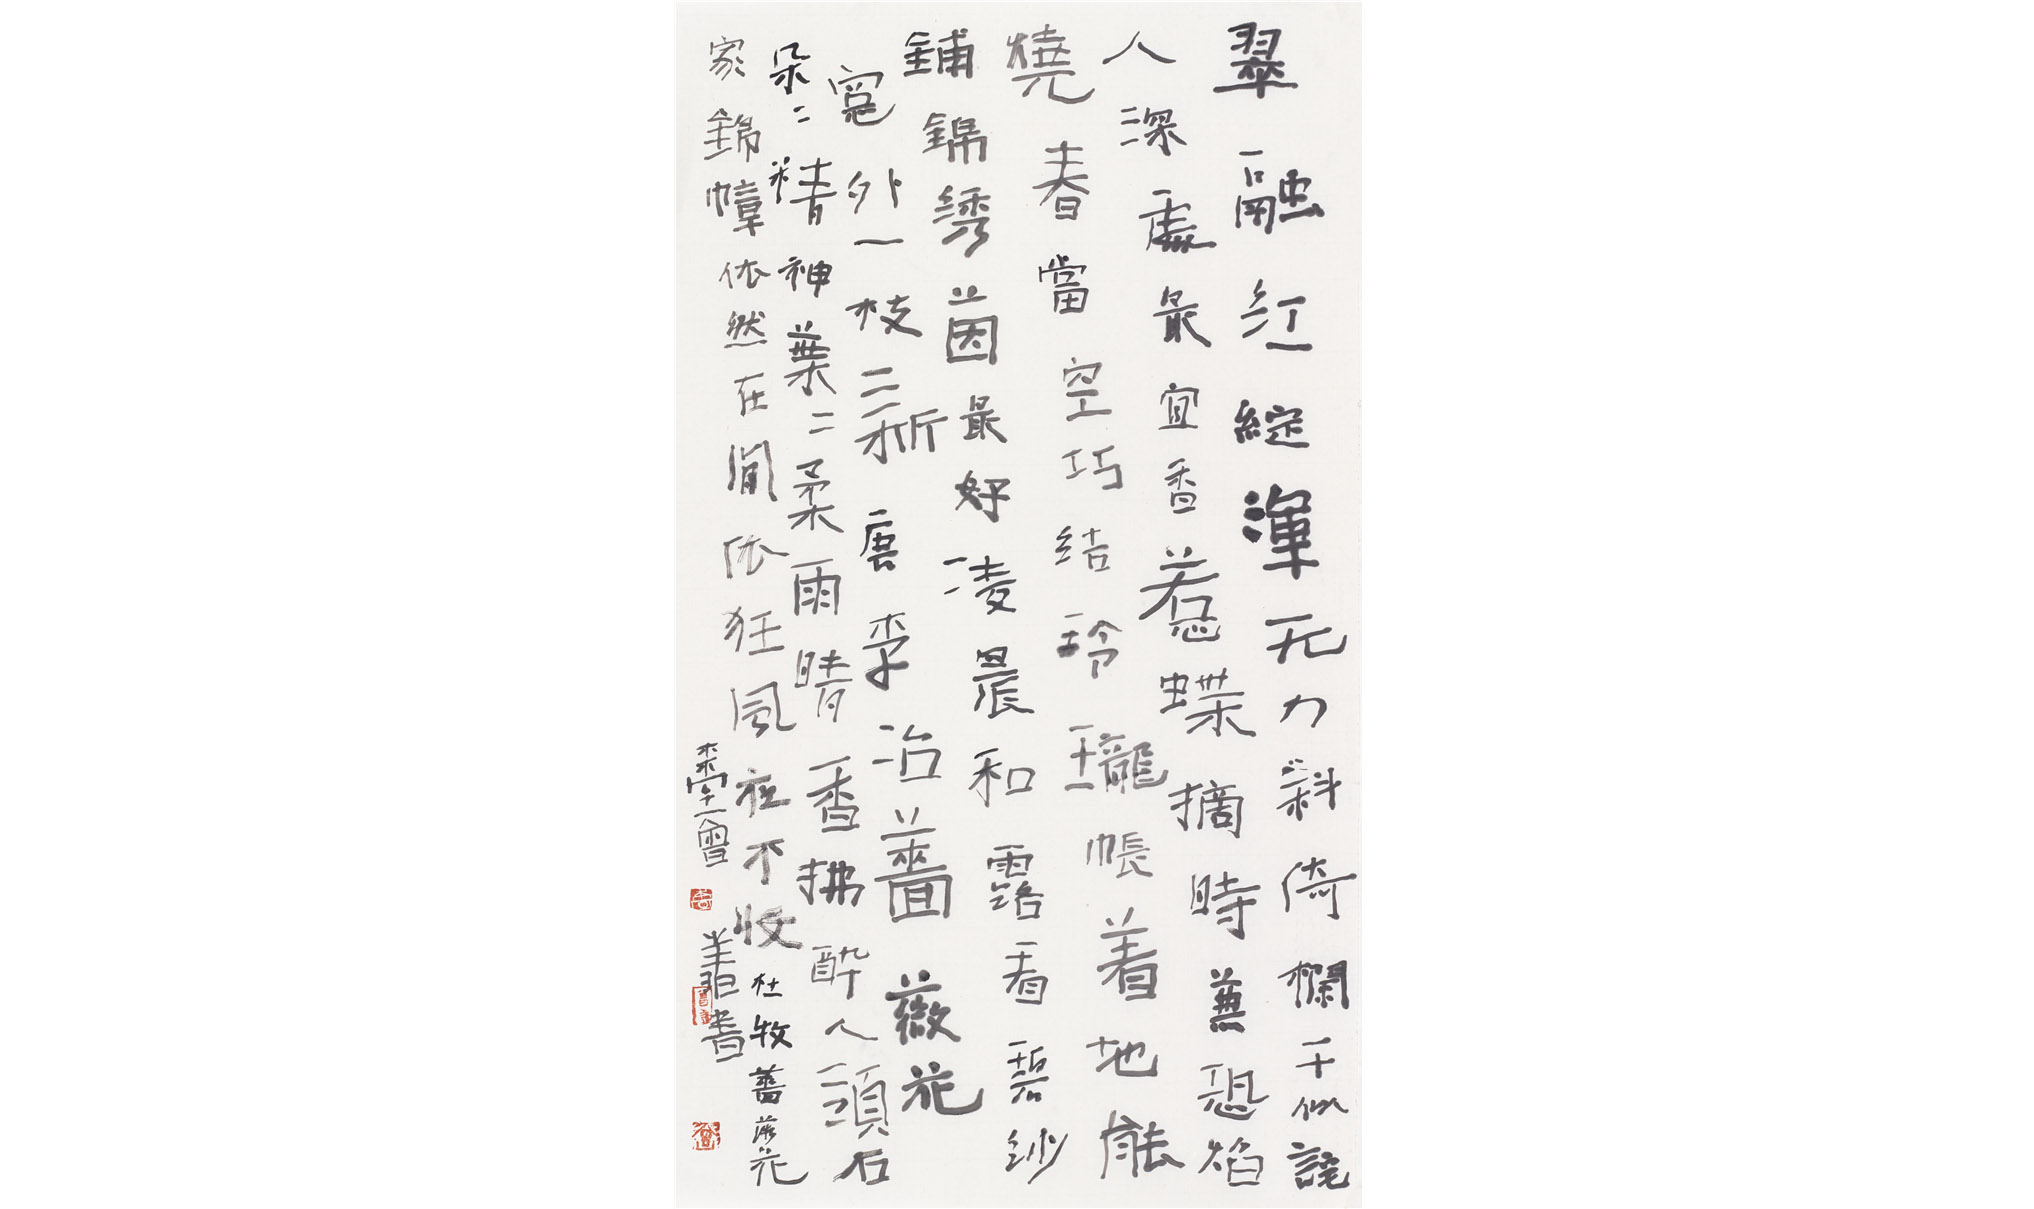 翠融红綻渾无力斜倚欄干似詫
人深處最宜香惹蝶摘時兼恐焰
燒春當空巧結玲瓏帳着地能
鋪錦綉茵最好凌晨和露看碧紗
窻外一枝新唐李冶薔薇花
朵二精神葉二柔雨晴香拂醉人頭石
家錦幛依然在閒依狂風夜不收杜牧薔薇花
曾翔書